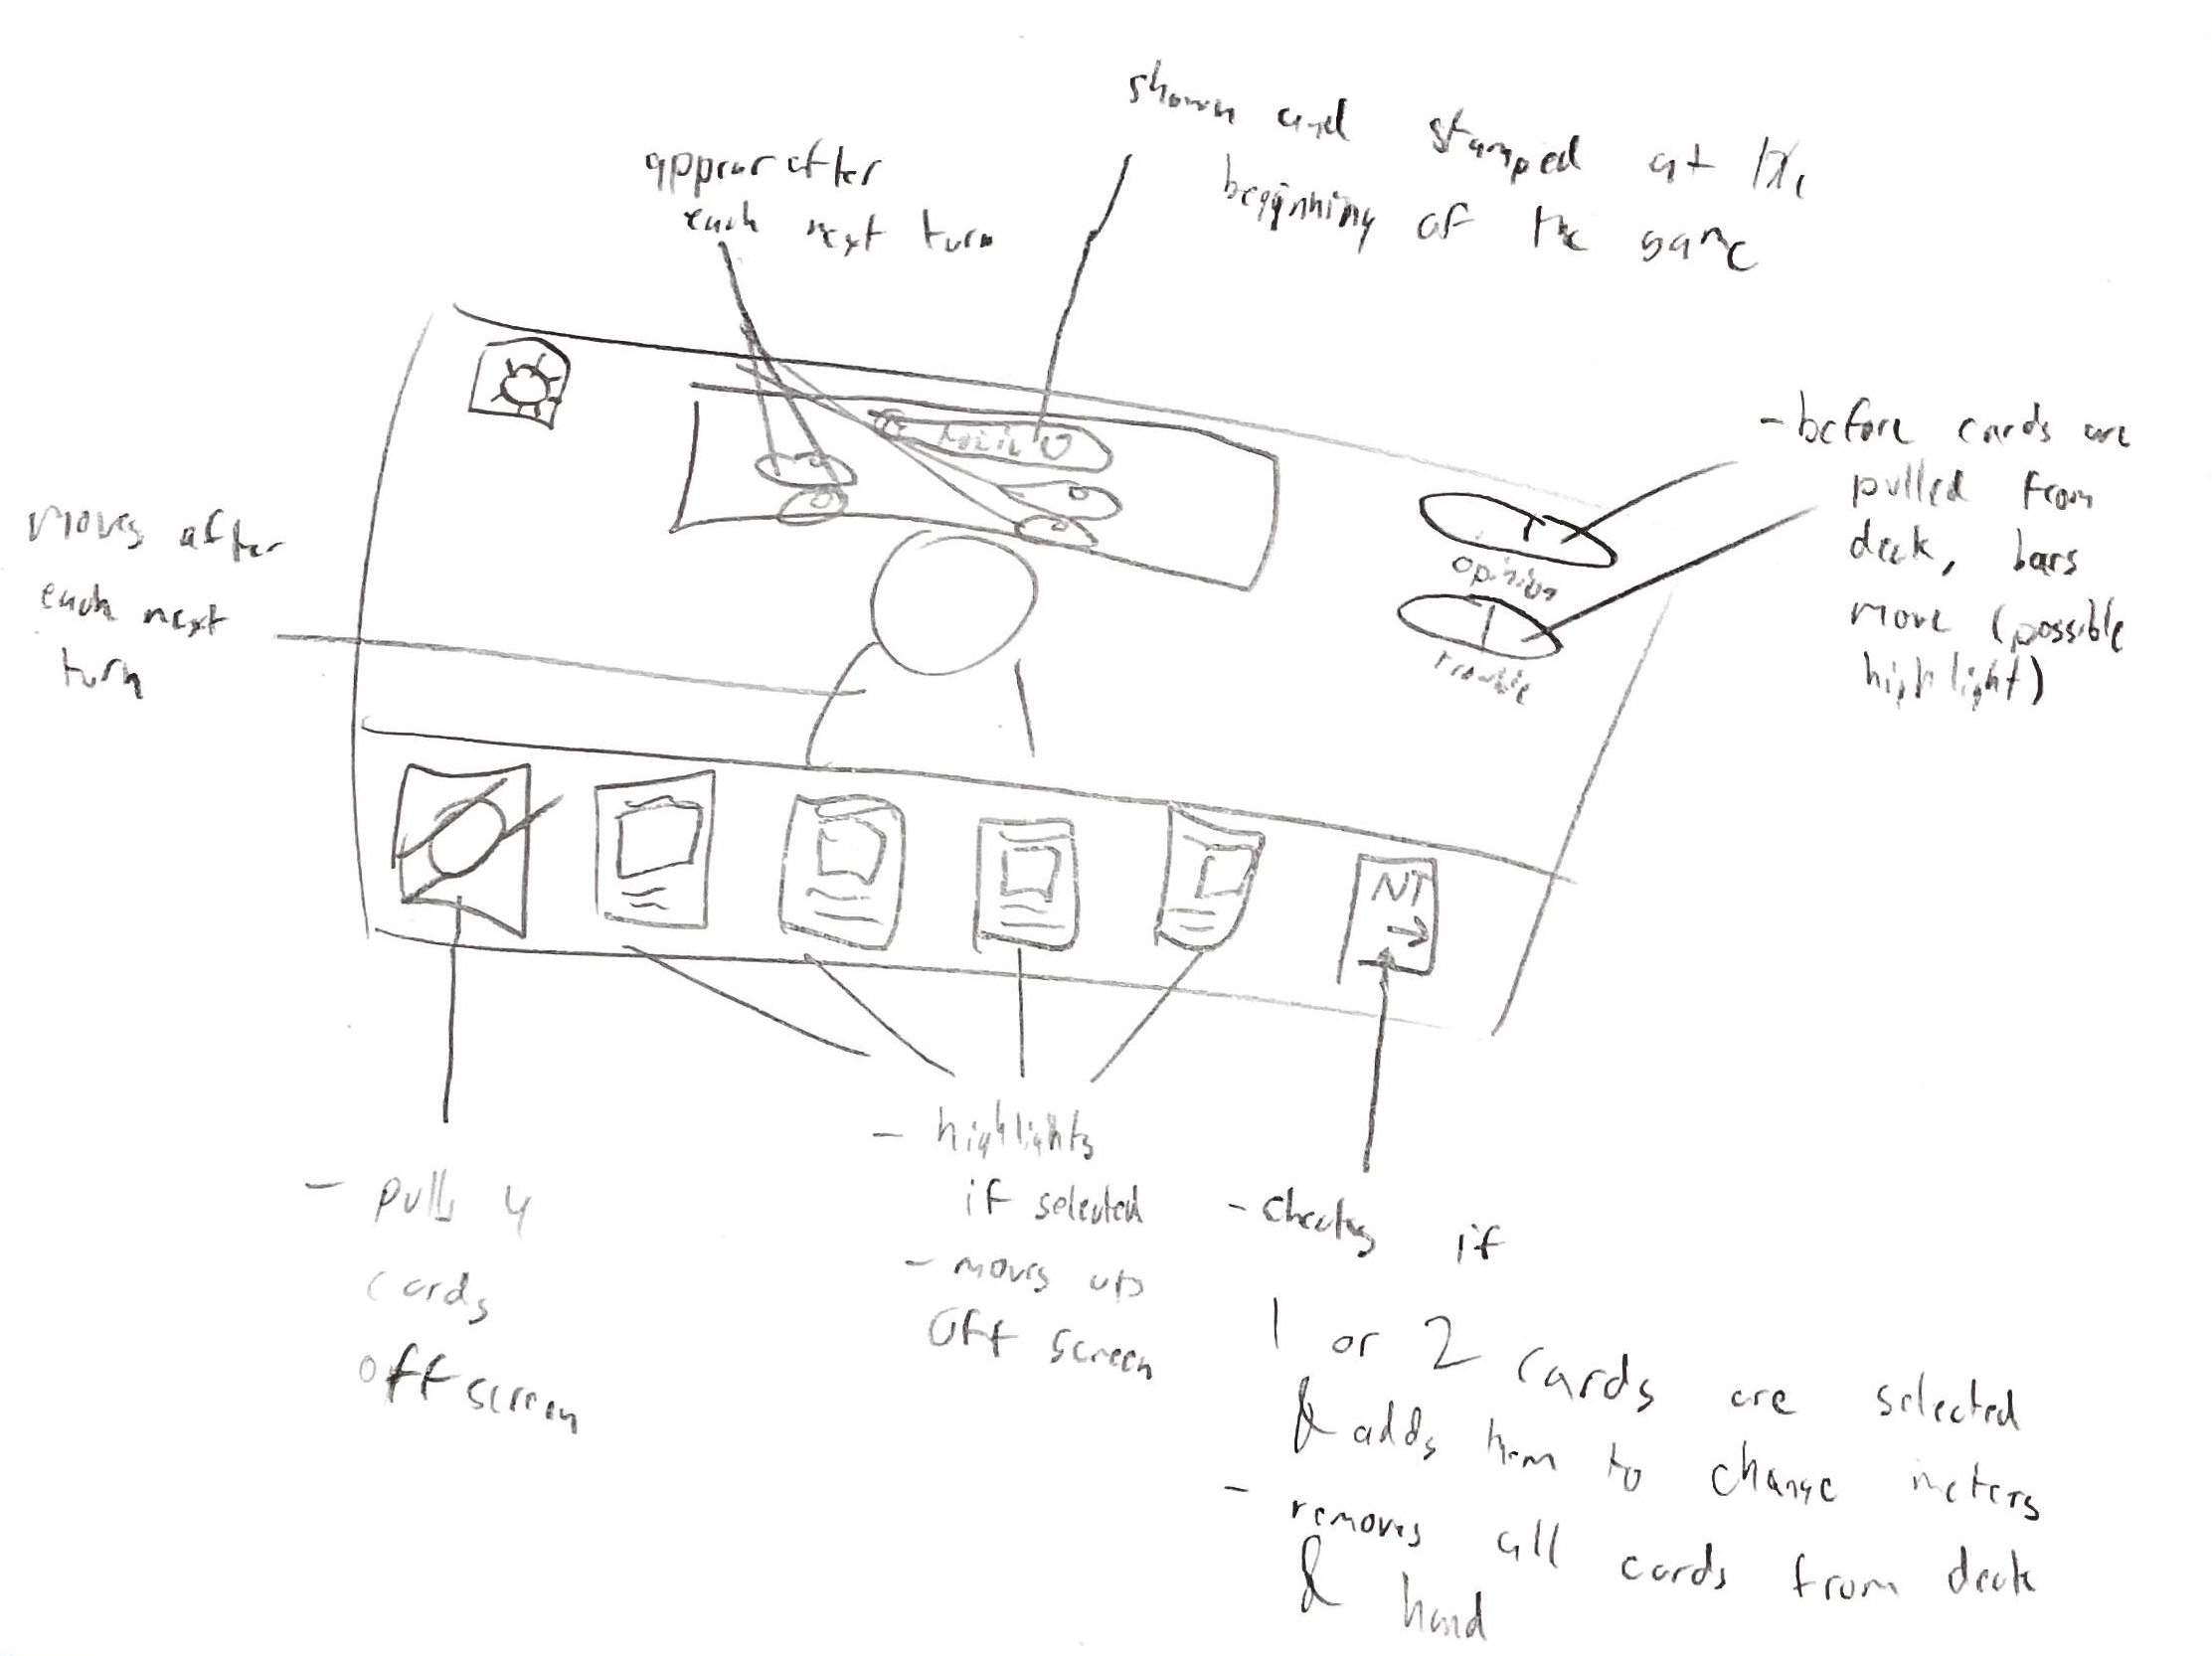 shown and stamped at the
beginning of the game
appear after
each next turn
- before cards are
pulled from
deck, bars
move (possible
highlight)
opinion
trouble
moves after
each next
turn
NT
- pulls 4
cards
off screen
- highlights
if selected
- moves up
off screen
- checks if
1 or 2 cards are selected
& adds them to change meters
- removes all cards from deck
& hand